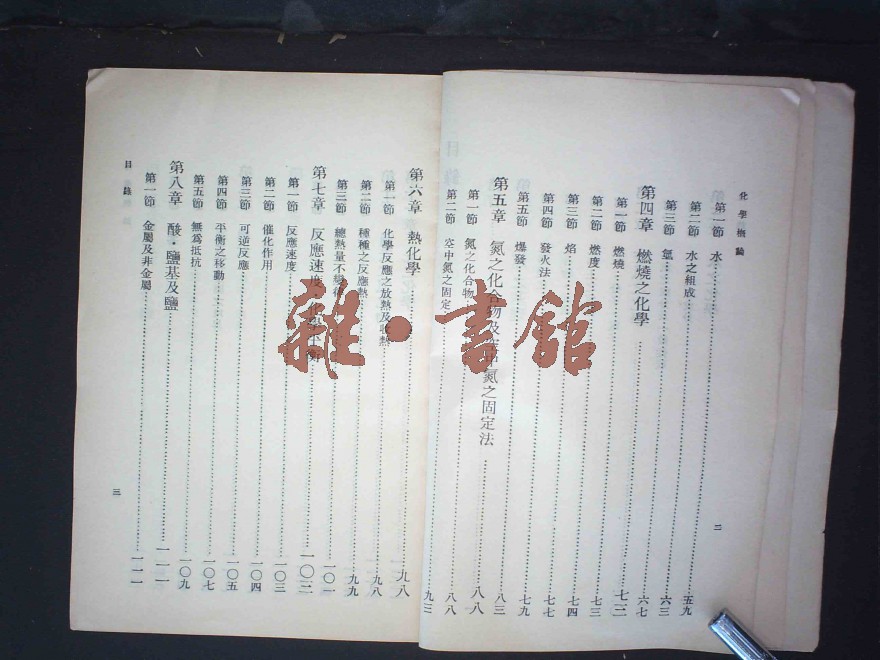 化學概論
第一節 水……五九
第二節 水之組成……六三
第三節 氫……六七
第四章 燃燒之化學……七二
第一節 燃燒……七三
第二節 燃度……七四
第三節 焰……七七
第四節 發火法……七九
第五節 爆發……八三
第五章 氮之化合物及空中氮之固定法……八八
第一節 氮之化合物……八八
第二節 空中氮之固定……九三
二
第六章 熱化學……九八
第一節 化學反應之放熱及吸熱……九八
第二節 種種之反應熱……九九
第三節 總熱量不變律……一〇一
第七章 反應速度 化學平衡……一〇三
第一節 反應速度……一〇三
第二節 催化作用……一〇四
第三節 可逆反應……一〇五
第四節 平衡之移動……一〇七
第五節 無爲抵抗……一〇九
第八章 酸·鹽基及鹽……一一一
第一節 金屬及非金屬……一一一
目錄
三
雜·書館